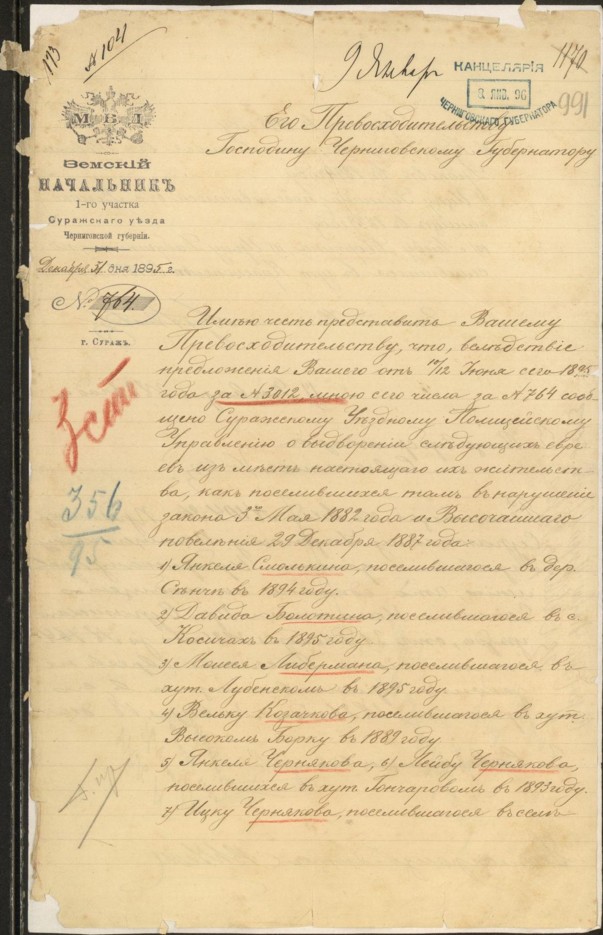 193
№ 104
9 Январ
КАНЦЕЛЯРІЯ
8 ЯНВ. 96
ЧЕРНИГОВСКАГО ГУБЕРНАТОРА
1170
991
М В Д
Земскій
НАЧАЛЬНИКЪ
1-го участка
Суражскаго уѣзда
Черниговской губерніи.
Декабря 31 дня 1895 г.
№ 764.
г. Суражъ.
Его Превосходительству
Господину Черниговскому Губернатору
Имѣю честь представить Вашему
Превосходительству, что, вслѣдствіе
предложенія Вашего отъ 10/12 Іюня сего 1895
года за № 3012, мною сего числа за № 764 сооб
щено Суражскому Уѣздному Полицейскому
Управленію о выдвореніи слѣдующихъ евре
евъ изъ мѣстъ настоящаго ихъ жительст
ва, какъ поселившихся тамъ въ нарушеніе
закона 3го Мая 1882 года и Высочайшаго
повелѣнія 29 Декабря 1887 года:
1) Янкеля Смолькина, поселившагося въ дер.
въ 1894 году.
2) Давида Болотина, поселившагося въ с.
Косичахъ въ 1895 году
3) Моисея Либермана, поселившагося въ
хут. Лубенскомъ въ 1895 году.
4) Вельку Козачкова, поселившагося въ хут.
Высокомъ Борку въ 1889 году
5) Янкеля Чернякова, 6) Лейбу Чернякова,
поселившихся въ хут. Гончаровомъ въ 1893 году.
7) Ицку Чернякова, поселившагося въ сель
3 ст
356
95